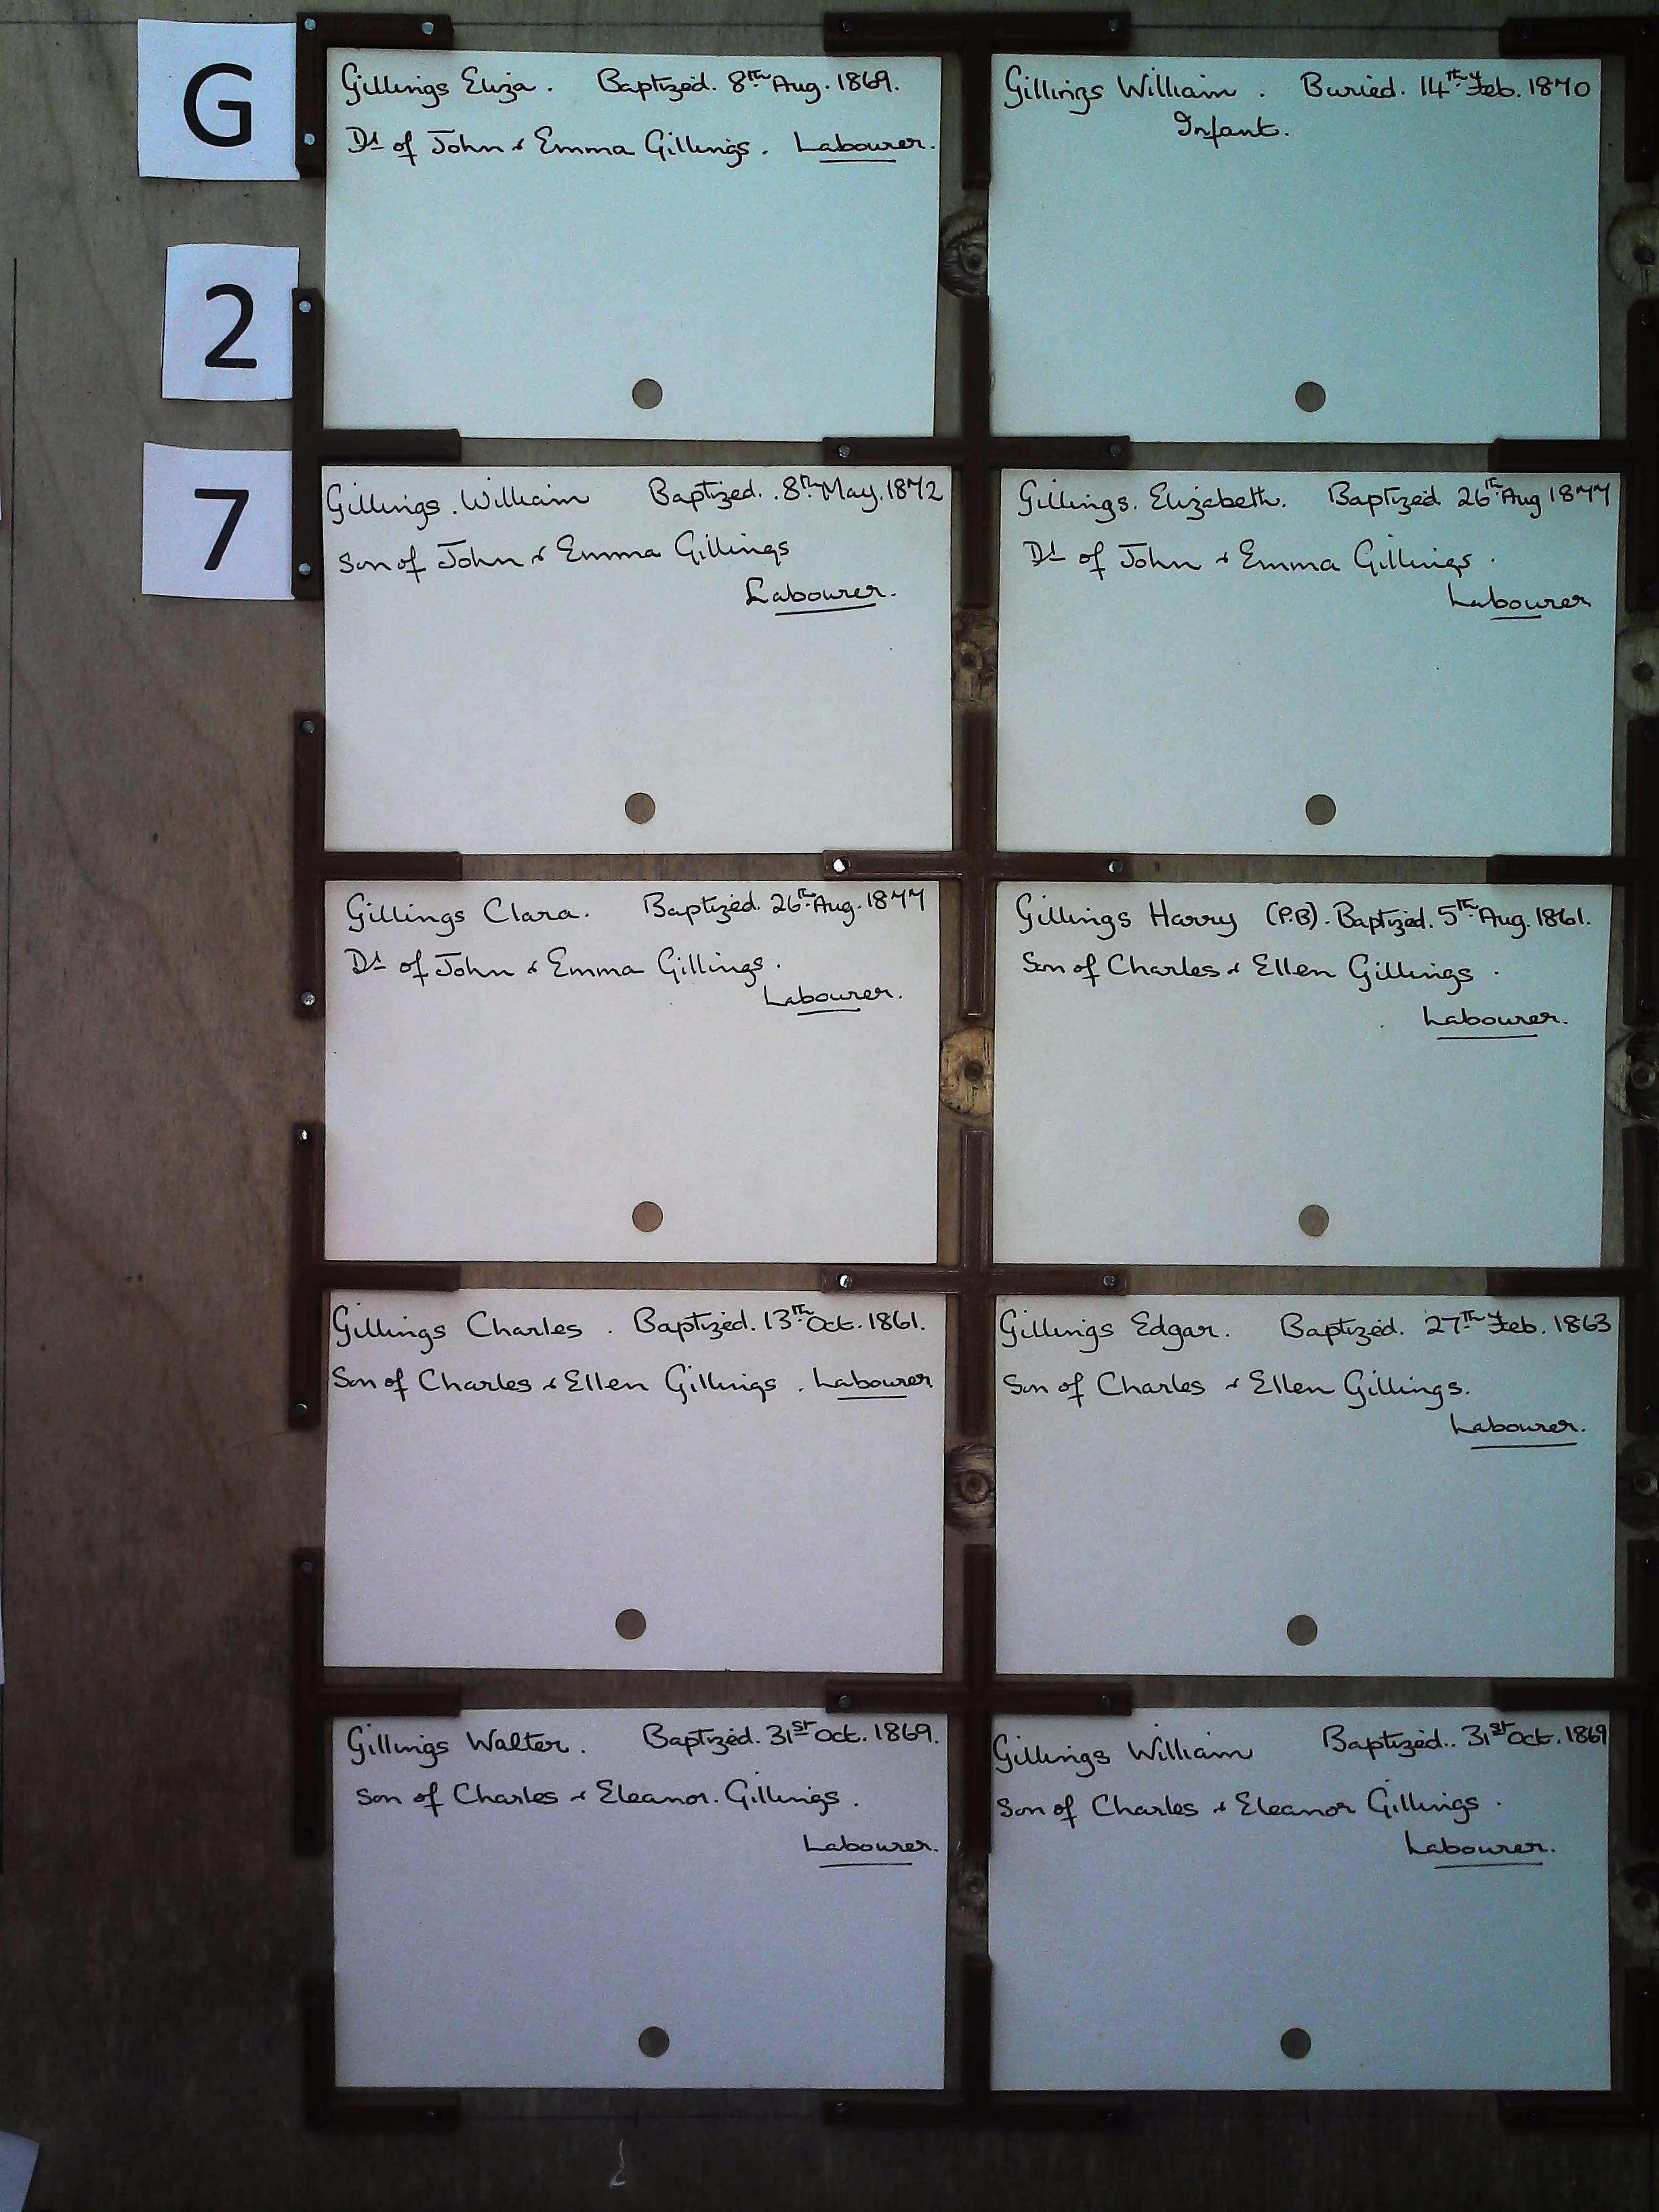 G
2
7
Gillings Eliza. Baptized. 8th Aug. 1869.
Dt of John & Emma Gillings. Labourer.
Gillings William. Buried. 14th Feb. 1870
Infant.
Gillings. William Baptized. 8th May. 1872
Son of John & Emma Gillings
Labourer.
Gillings. Elizabeth. Baptized 26th Aug 1877
Dt of John & Emma Gillings.
Labourer
Gillings Clara. Baptized. 26th Aug. 1877
Dt of John & Emma Gillings.
Labourer.
Gillings Harry (P.B). Baptized. 5th Aug. 1861.
Son of Charles & Ellen Gillings.
Labourer.
Gillings Charles. Baptized. 13th Oct. 1861.
Son of Charles & Ellen Gillings. Labourer
Gillings Edgar. Baptized. 27th Feb. 1863
Son of Charles & Ellen Gillings.
Labourer.
Gillings Walter. Baptized. 31st Oct. 1869.
Son of Charles & Eleanor. Gillings.
Labourer.
Gillings William Baptized.. 31st Oct. 1869
Son of Charles & Eleanor Gillings.
Labourer.